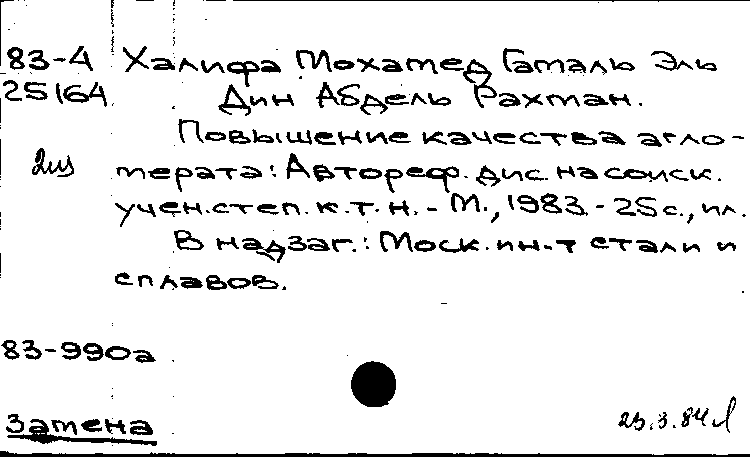 83-4 Халифа Мохамед Гамаль Эль
25164 Дин Абдель Рахман.
Повышение качества агло-
мерата: Автореф. дис. на соиск.
учен. степ. к. т. н. - М., 1983. - 25 с., ил.
В надзаг.: Моск. ин-т стали и
сплавов.
83-990а
Замена